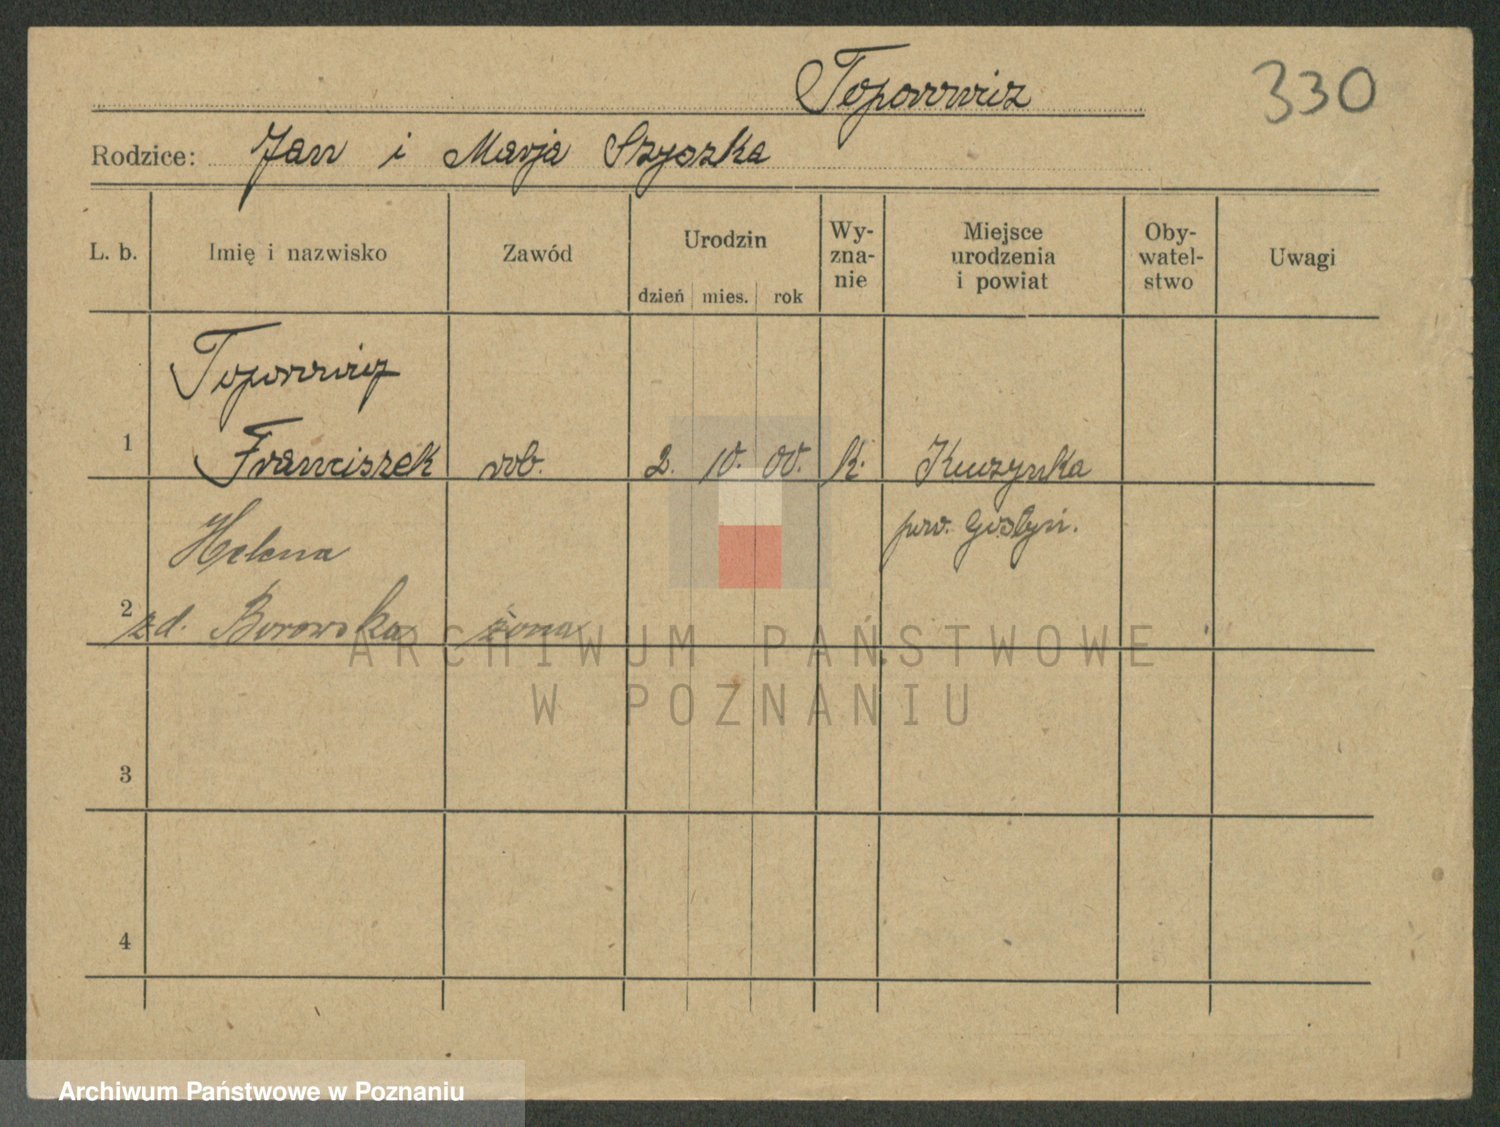 Toporowicz
330
Rodzice: Jan i Marja Szyszka
L. b. Imię i nazwisko Zawód Urodzin dzień mies. rok Wy-zna-nie Miejsce urodzenia i powiat Oby-watel-stwo Uwagi
Toporowicz
1 Franciszek rob. 2. 10. 00. k.
pow. Gostyń.
Helena
2 zd. Borowska żona
3
4
ARCHIWUM PAŃSTWOWE
W POZNANIU
Archiwum Państwowe w Poznaniu